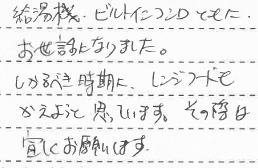 給湯機・ビルトインコンロともに
お世話になりました。
しかるべき時期に、レンジフードも
かえようと思っています。その際は
宜しくお願いします